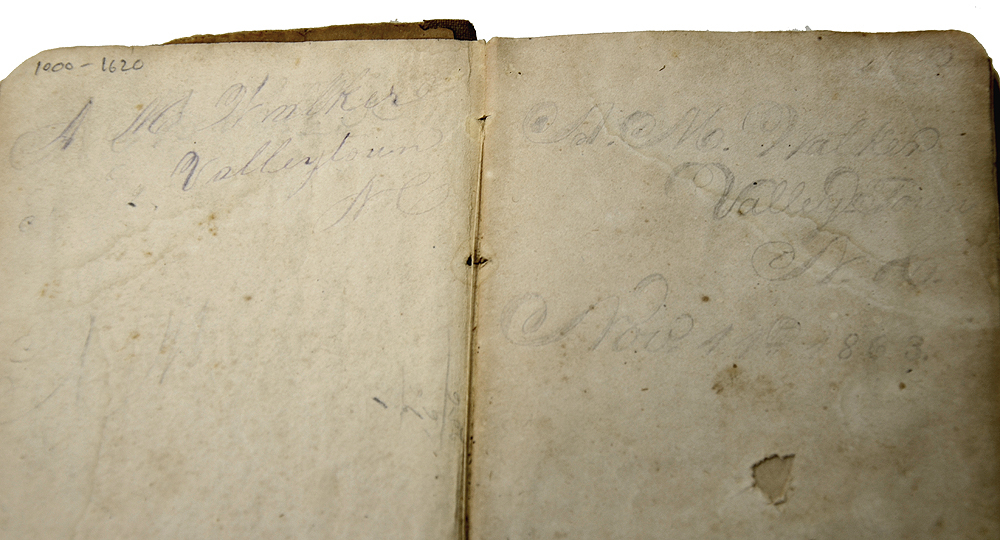 1000-1620
A M Walker
Valleytown
N C
A. M. Walker
Valleytown
N. C.
Nov 1863